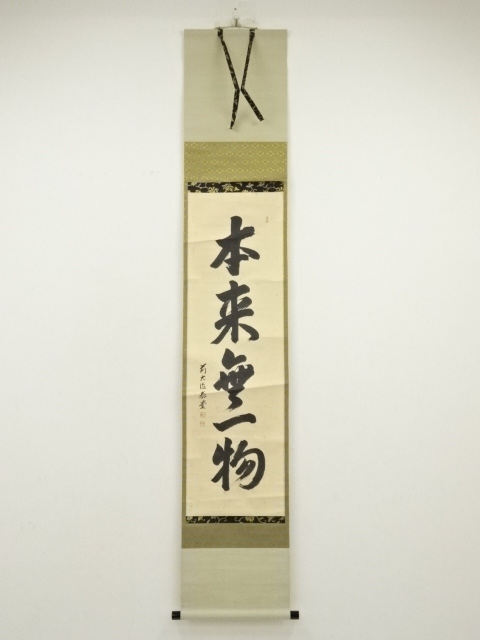 本来無一物
前大徳